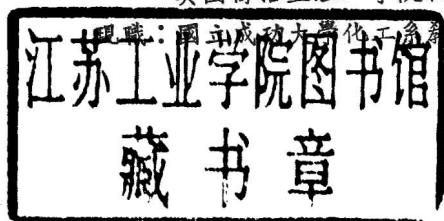 現職：國立成功大學化工系
江苏工业学院图书馆
藏书章